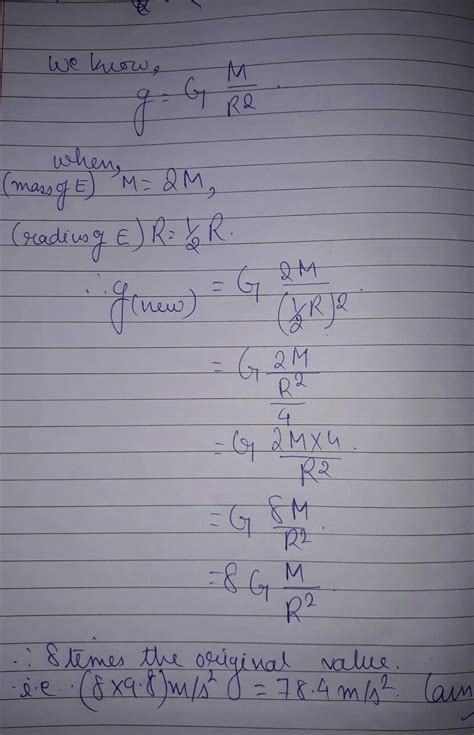 we know,
g = G M/R2.
when,
(mass of E) M = 2M,
(radius of E) R = 1/2 R.
∴ g(new) = G 2M/(1/2 R)2
= G 2M/(R2/4)
= G 2M×4/R2.
= G 8M/R2.
= 8 G M/R2
∴ 8 times the original value.
i.e. (8×9.8)m/s2 = 78.4 m/s2. (ans